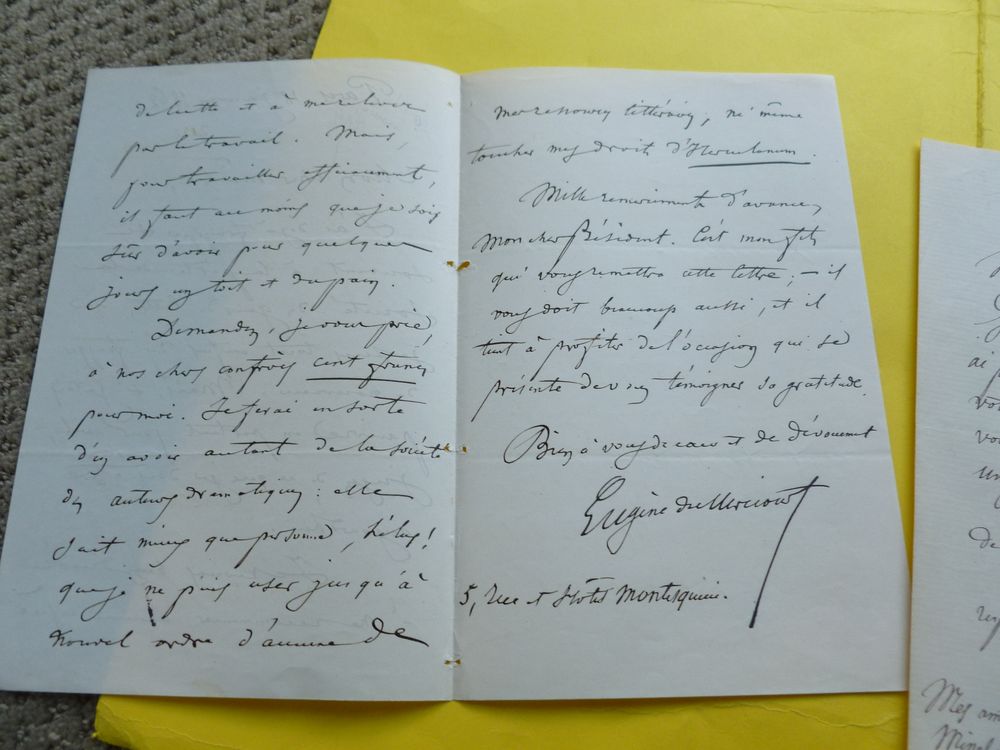 de lutte et à me relever
par le travail. Mais,
pour travailler efficacement,
il faut au moins que je sois
sûr d'avoir pour quelques
jours un toit et du pain.
Demandez, je vous prie,
à nos chers confrères cent francs
pour moi. Je ferai en sorte
d'en avoir autant de la société
des auteurs dramatiques : elle
sait mieux que personne, hélas !
que je ne puis user jusqu'à
nouvel ordre d'aucune de
mes ressources littéraires, ni même
toucher mes droits d'Herculanum.
Mille remerciements d'avance,
Mon cher Président. C'est mon fils
qui vous remettra cette lettre ; — il
vous doit beaucoup aussi, et il
tient à profiter de l'occasion qui se
présente de vous témoigner sa gratitude.
Bien à vous de cœur et de dévouement
Eugène de Mirecourt
5, rue et Hôtel Montesquieu.
ai
de
Mes am